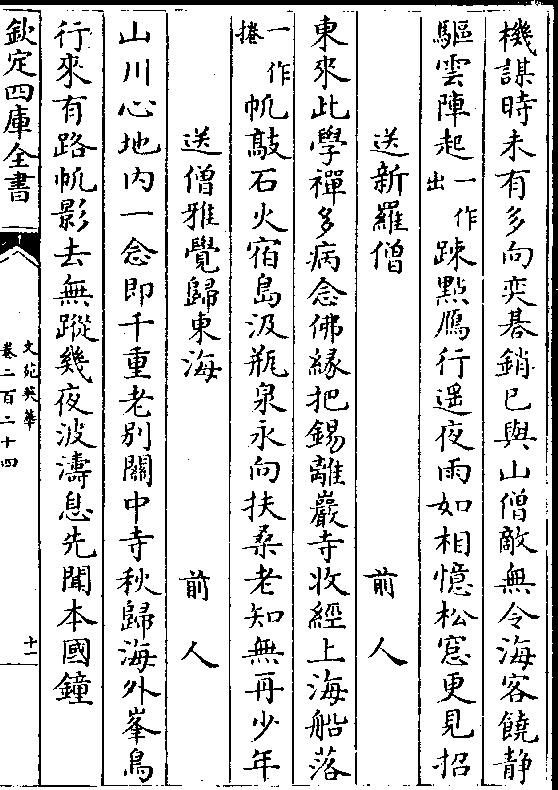 機謀時未有多向奕碁銷已與山僧敵無令海客饒静
驅雲陣起一作出踈點鴈行遥夜雨如相憶松窓更見招
送新羅僧 前人
東來此學禪多病念佛縁把錫離巖寺收經上海船落
一作捲帆敲石火宿島汲瓶泉永向扶桑老知無再少年
送僧雅覺歸東海 前人
山川心地内一念即千重老别關中寺秋歸海外峯鳥
行來有路帆影去無蹤幾夜波濤息先聞本國鐘
欽定四庫全書
文苑英華
卷二百二十四
十一